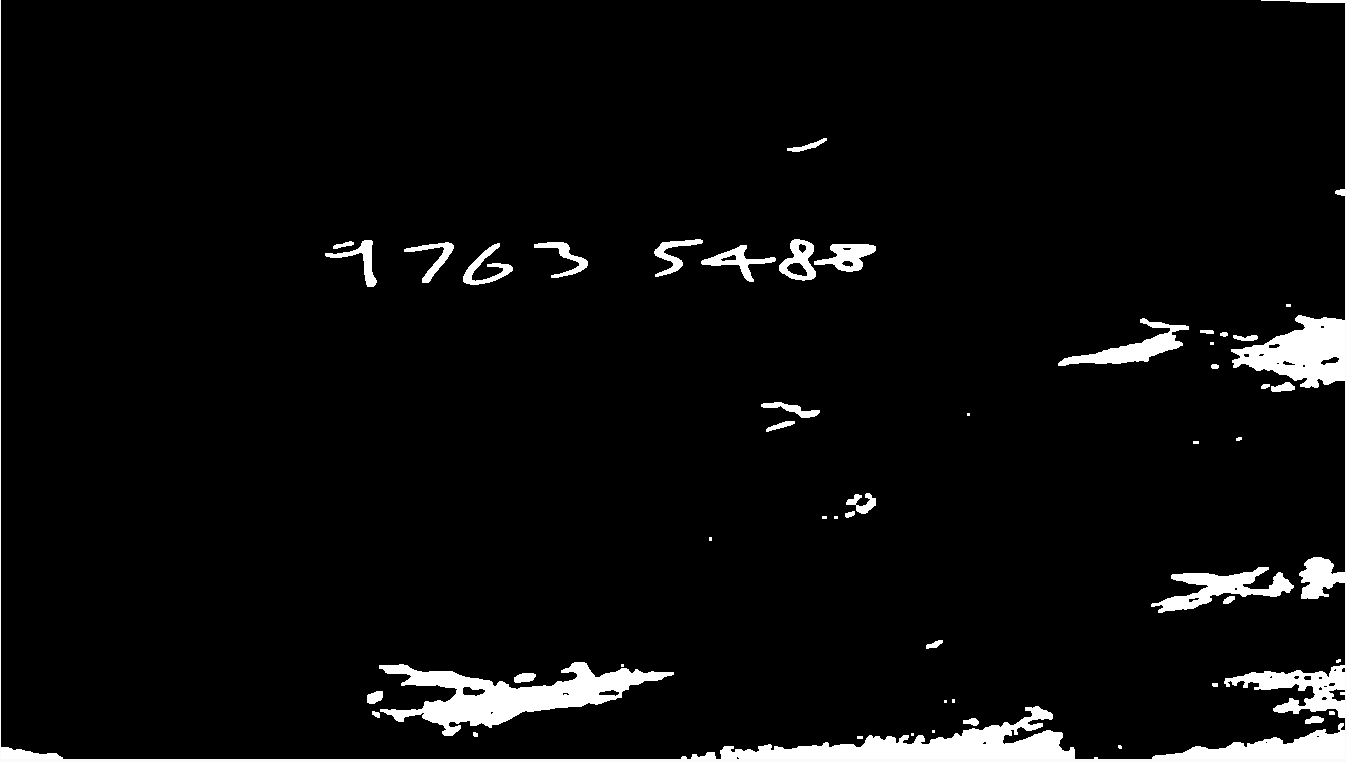 9763 5488